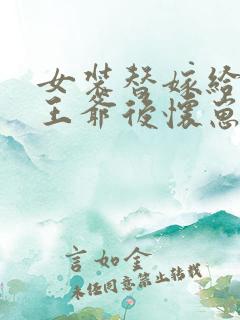 女装替嫁给
王爷后怀崽
言如金
未经同意禁止转载